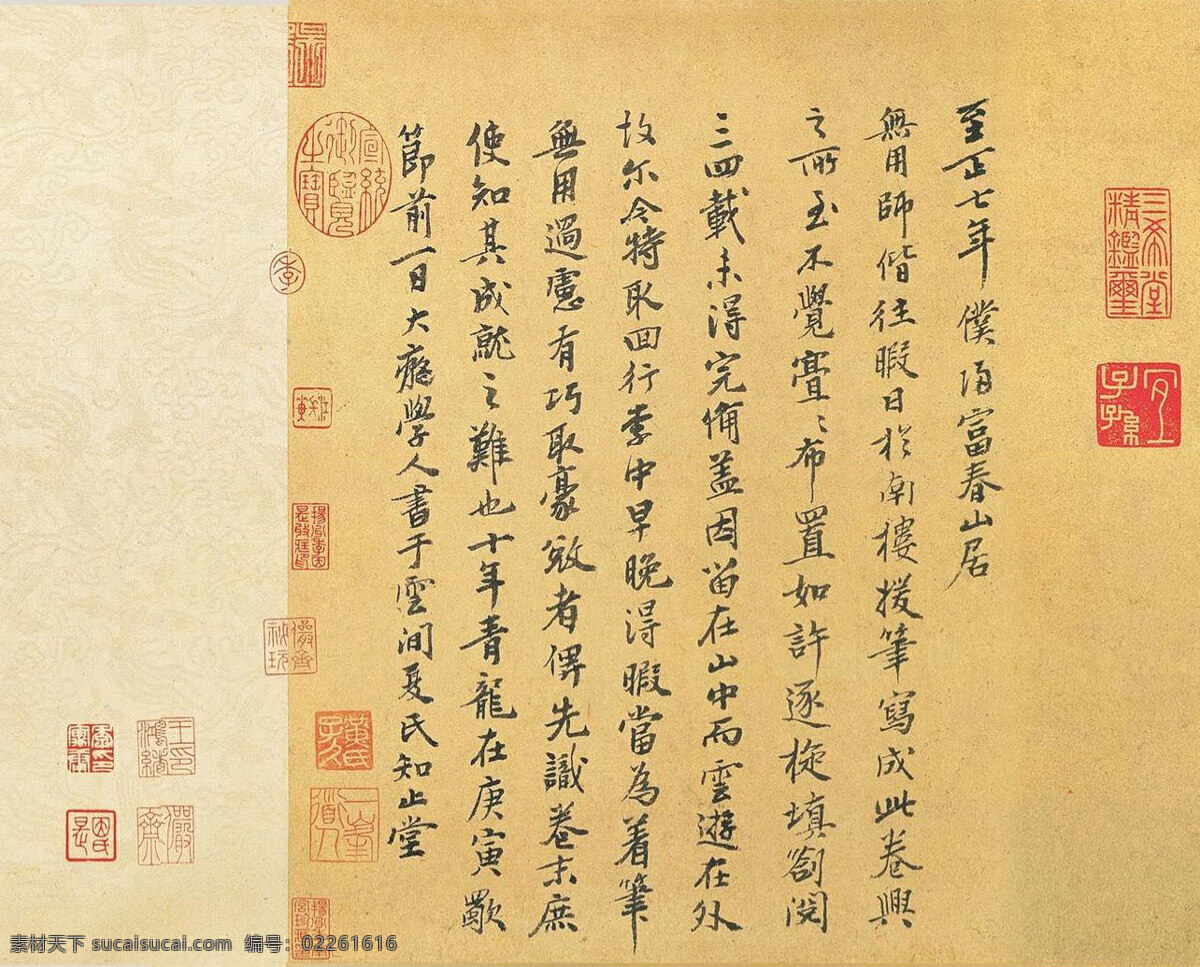 三希堂精鑑璽
宜子孫
至正七年僕歸富春山居
無用師偕往暇日於南樓援筆寫成此卷興
之所至不覺亹〻布置如許逐旋填劄閱
三四載未得完備盖因留在山中而雲遊在外
故尔今特取回行李中早晚得暇當為着筆
無用過慮有巧取豪敓者俾先識卷末庶
使知其成就之難也十年青龍在庚寅歜
節前一日大癡學人書于雲間夏氏知止堂
宣統御覽之寶
黃氏子久
一峯道人
王鴻緒印
儼齋
素材天下 sucaisucai.com 编号：02261616